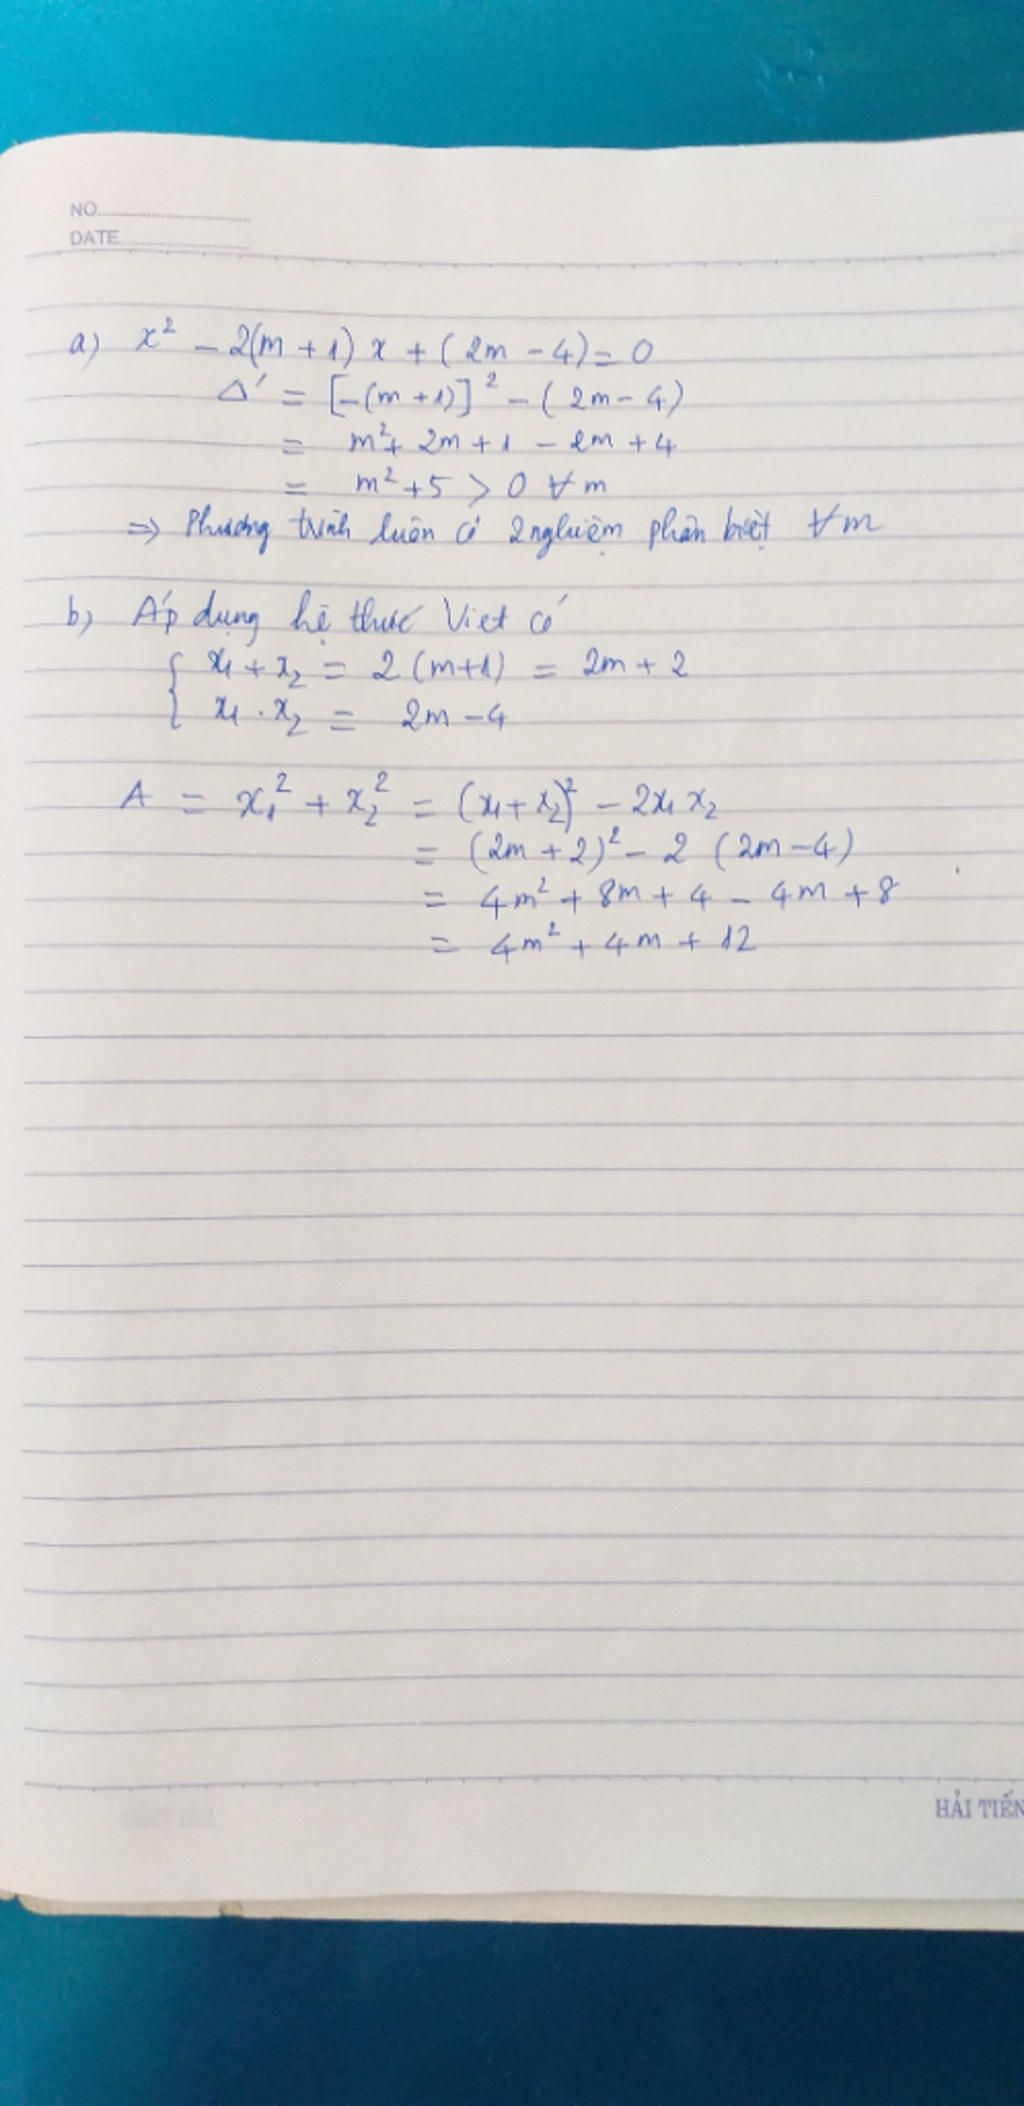 NO
DATE
a) x² - 2(m + 1) x + (2m - 4) = 0
Δ' = [-(m + 1)]² - (2m - 4)
= m² + 2m + 1 - 2m + 4
= m² + 5 > 0 ∀m
=> Phương trình luôn có 2 nghiệm phân biệt ∀m
b) Áp dụng hệ thức Viet có
{ x₁ + x₂ = 2 (m+1) = 2m + 2
x₁ . x₂ = 2m - 4
A = x₁² + x₂² = (x₁ + x₂)² - 2x₁ x₂
= (2m + 2)² - 2 (2m - 4)
= 4m² + 8m + 4 - 4m + 8
= 4m² + 4m + 12
HẢI TIẾN